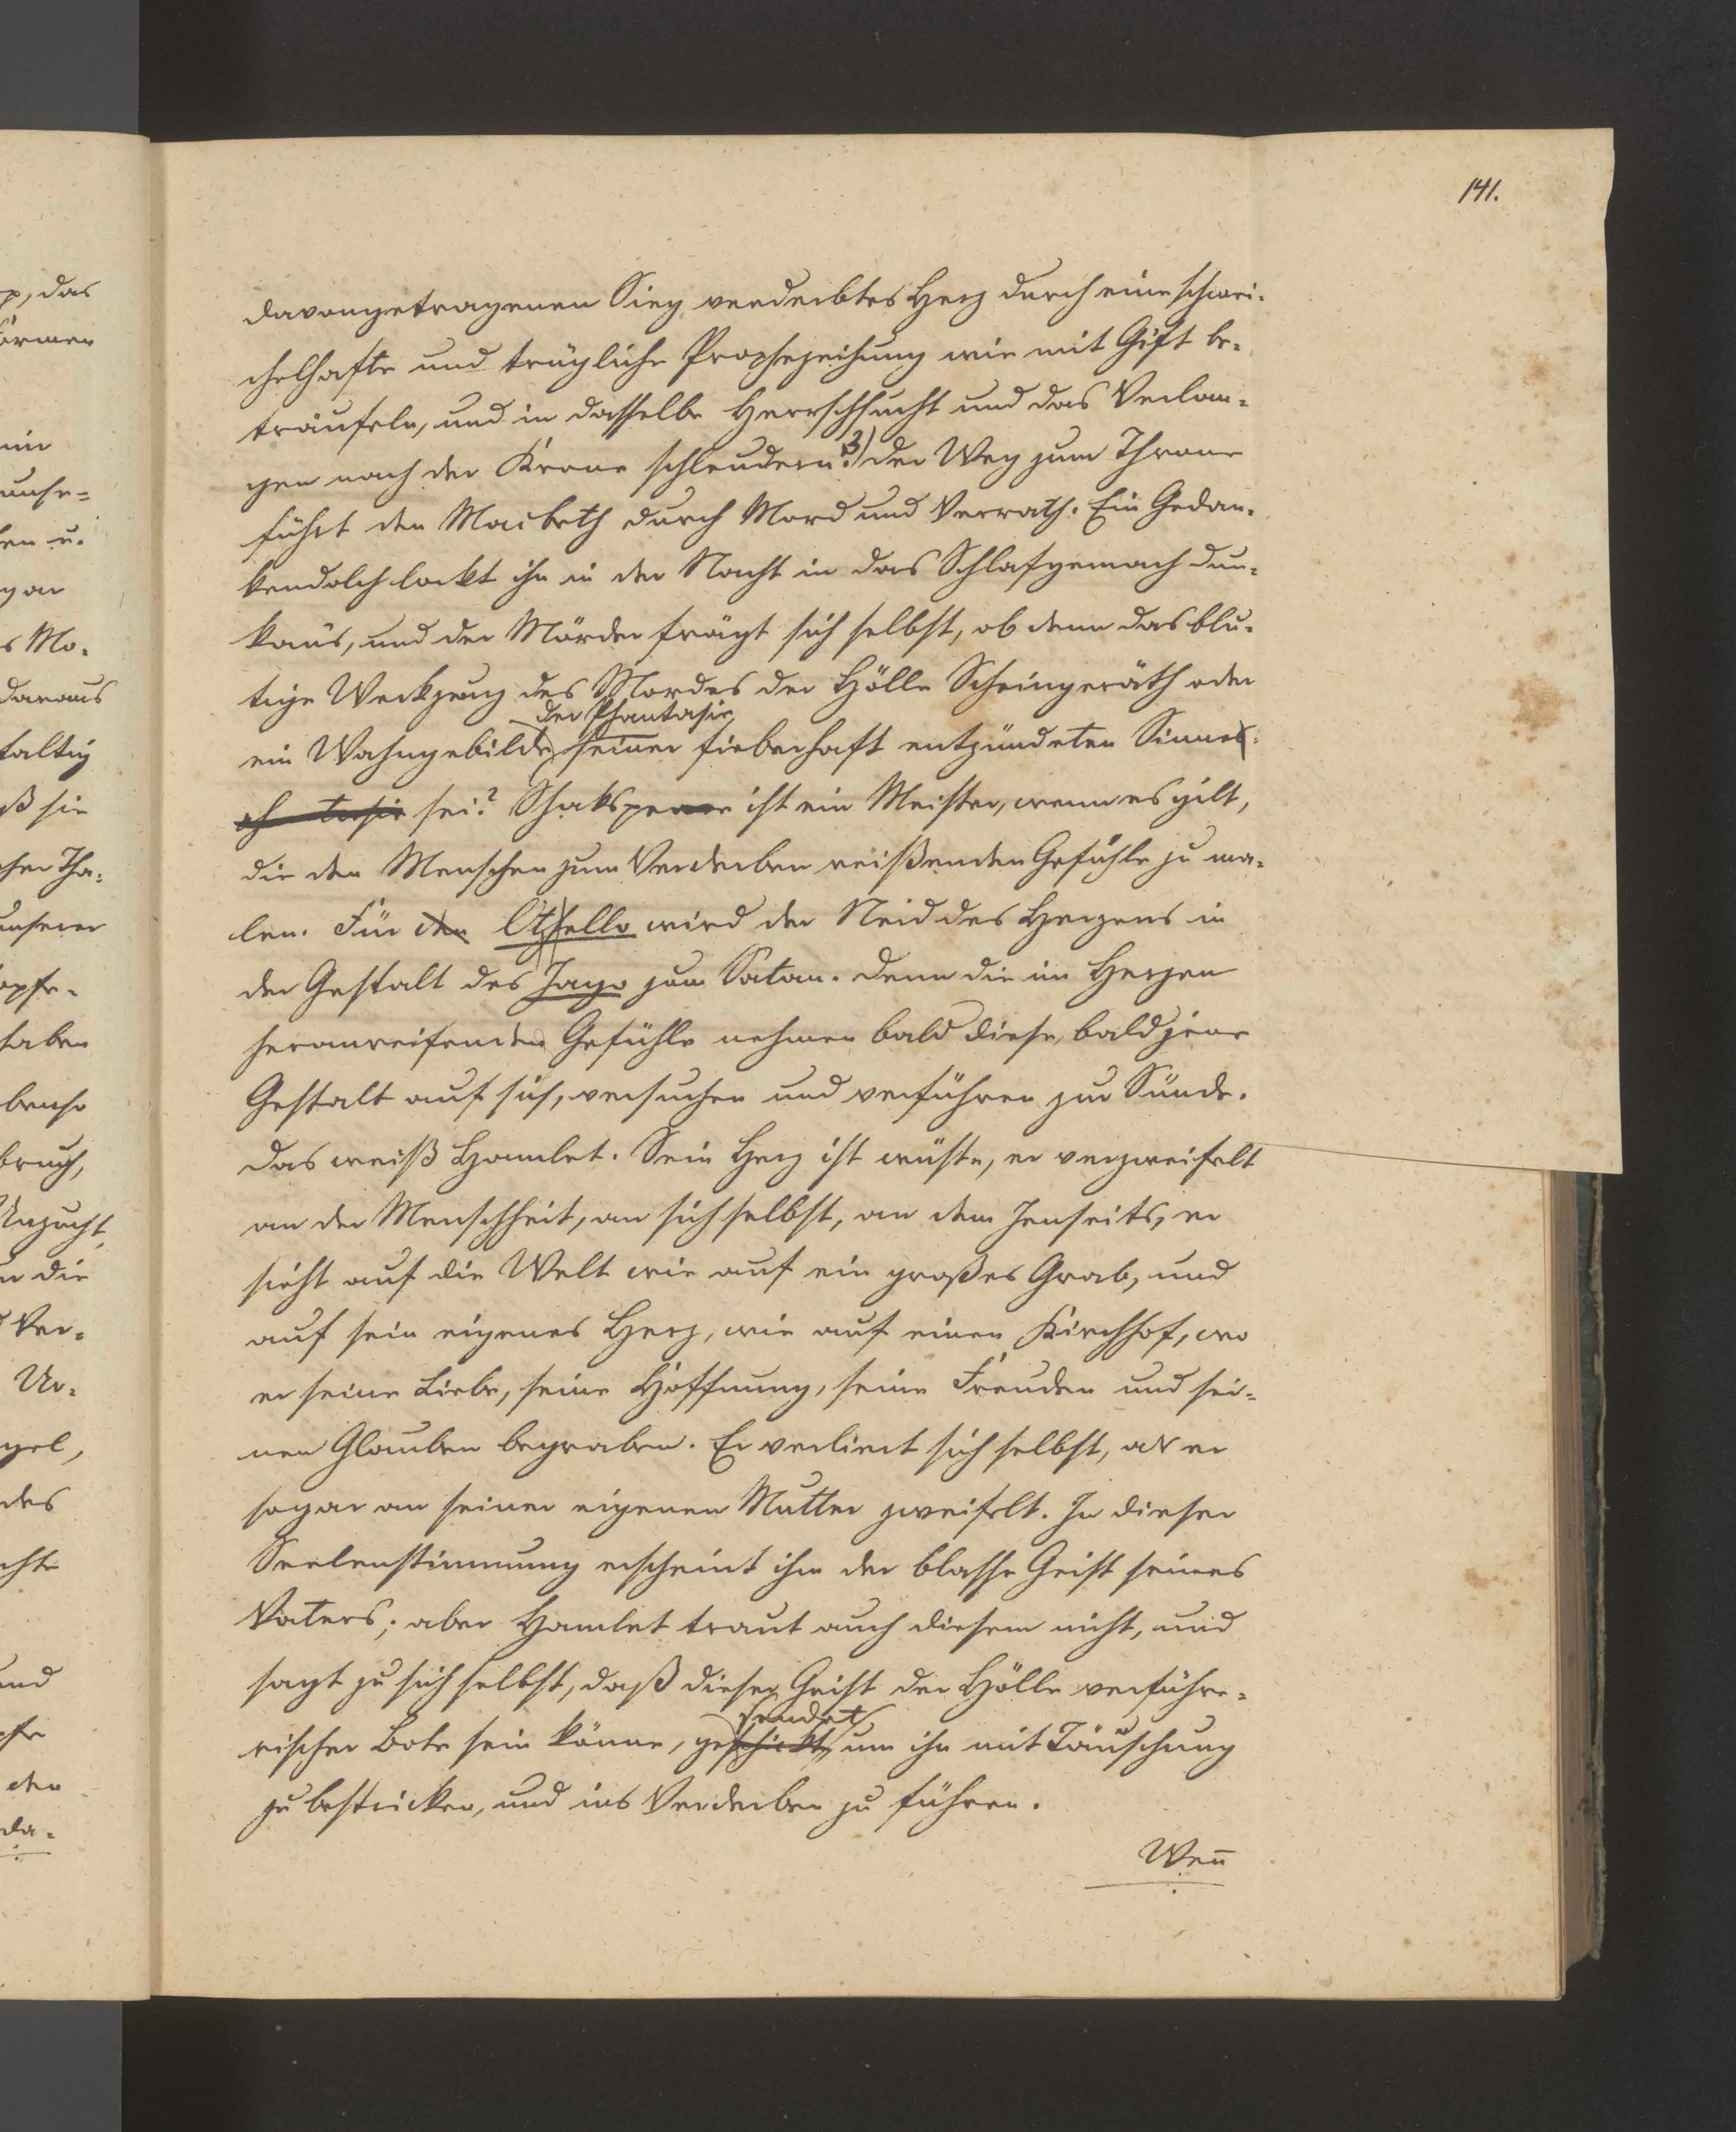 141.
davongetragenen Sieg verderbtes Herz durch eine schmei-
chelhafte und trügliche Prophezeihung wie mit Gift be-
träufeln, und in dasselbe Herrschsucht und das Verlan-
gen nach der Krone schleudern. 3) Der Weg zum Throne
führt den Macbeth durch Mord und Verrath. Ein Gedan-
kendolch lockt ihn in der Nacht in das Schlafgemach Dun-
kans, und der Mörder frägt sich selbst, ob denn das blu-
tige Werkzeug des Mordes der Hölle Scheingeräth oder
der Phantasie
ein Wahngebilde seiner fieberhaft entzündeten Sinne
sei? Shakspeare ist ein Meister, wenn es gilt,
die den Menschen zum Verderben reißenden Gefühle zu ma-
len. Für den Othello wird der Neid des Herzens in
der Gestalt des Jago zum Satan. Denn die im Herzen
heranreifenden Gefühle nehmen bald diese, bald jene
Gestalt auf sich, versuchen und verführen zur Sünde.
Das weiß Hamlet. Sein Herz ist wüste, er verzweifelt
an der Menschheit, an sich selbst, an dem Jenseits, er
sieht auf die Welt wie auf ein großes Grab, und
auf sein eigenes Herz, wie auf einen Kirchhof, wo
er seine Liebe, seine Hoffnung, seine Freuden und sei-
nen Glauben begraben. Er verliert sich selbst, als er
sogar an seiner eigenen Mutter zweifelt. In dieser
Seelenstimmung erscheint ihm der blasse Geist seines
Vaters; aber Hamlet traut auch diesem nicht, und
sagt zu sich selbst, daß dieser Geist der Hölle verführe-
sendet
rischer Bote sein könne, geschickt, um ihn mit Täuschung
zu bestricken, und ins Verderben zu führen.
Wen̅